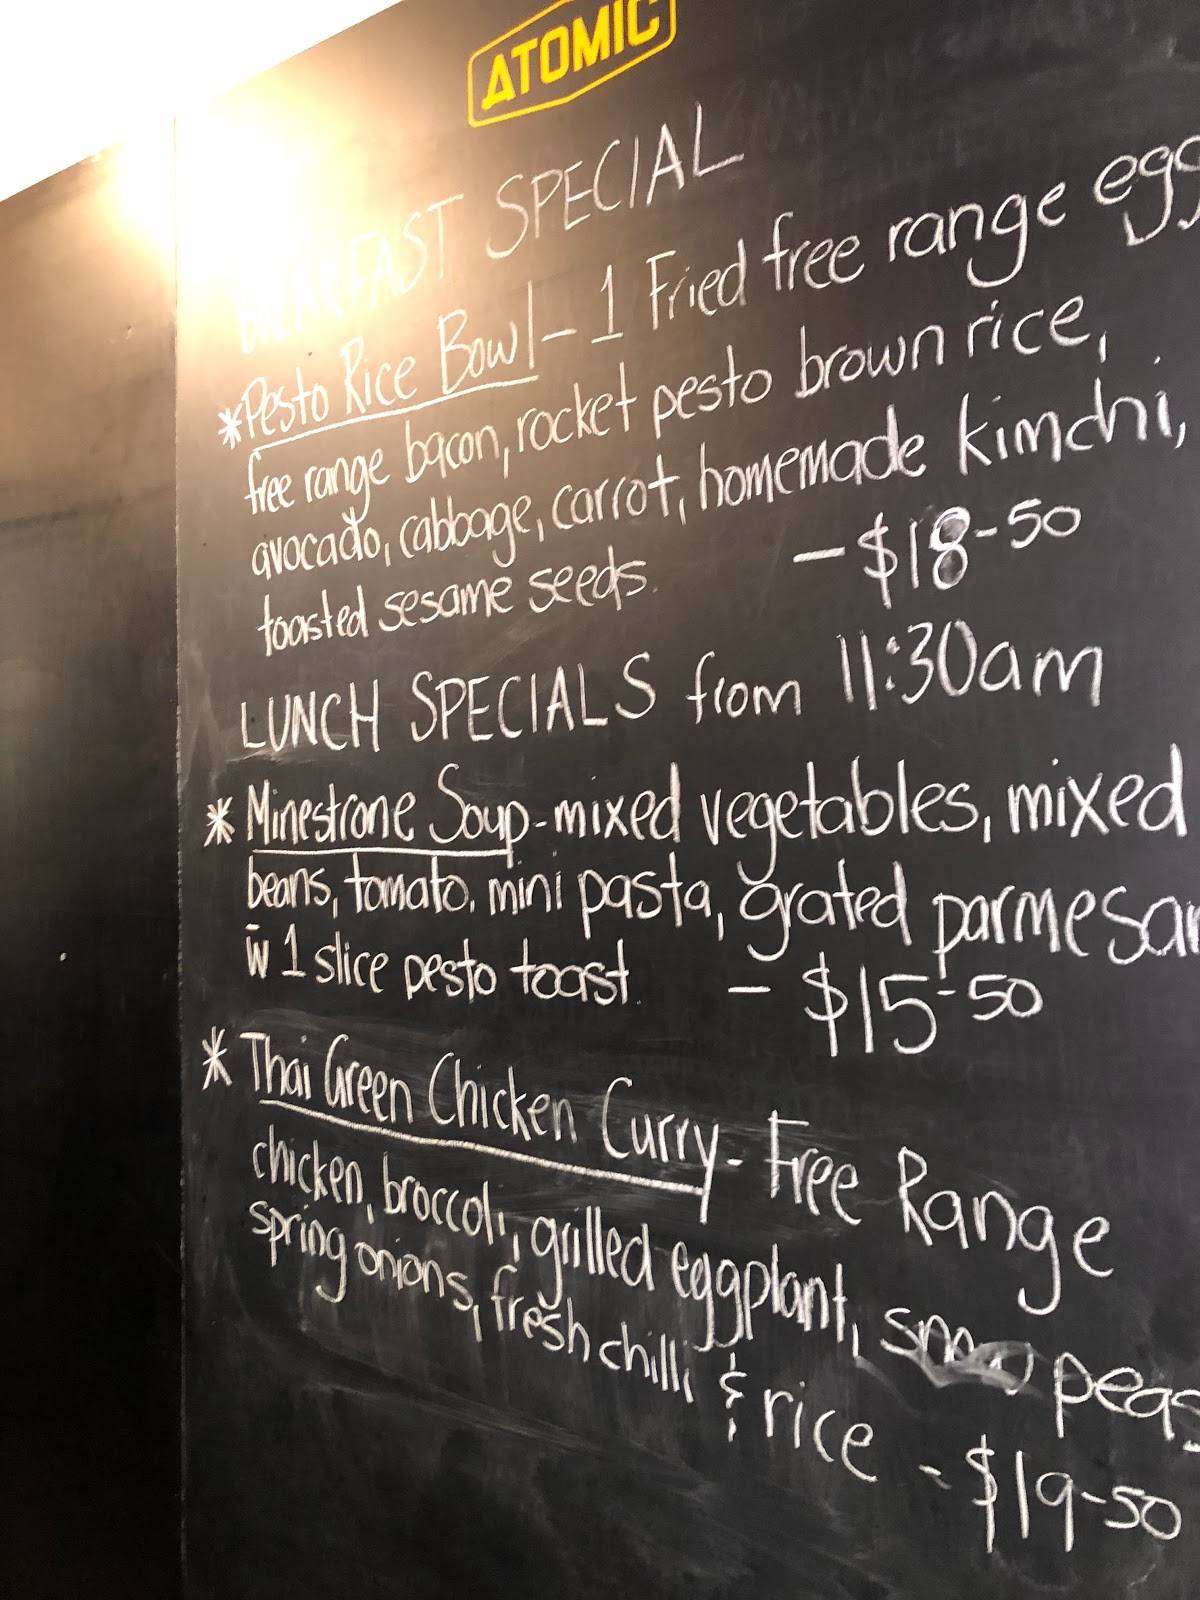 ATOMIC
BREAKFAST SPECIAL
*Pesto Rice Bowl - 1 Fried free range egg
free range bacon, rocket pesto brown rice,
avocado, cabbage, carrot, homemade kimchi,
toasted sesame seeds. - $18-50
LUNCH SPECIALS from 11:30am
* Minestrone Soup - mixed vegetables, mixed
beans, tomato, mini pasta, grated parmesan
w 1 slice pesto toast. - $15-50
* Thai Green Chicken Curry - Free Range
chicken, broccoli, grilled eggplant, snow peas
spring onions, fresh chilli & rice - $19-50